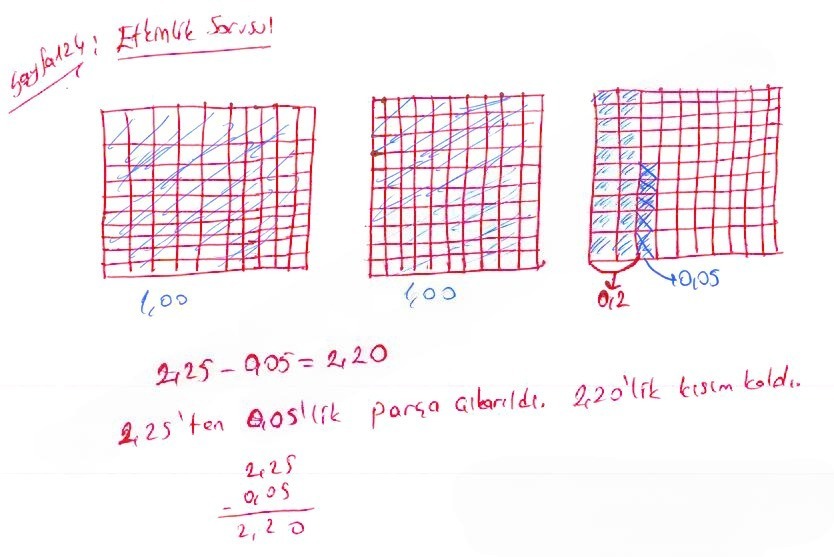 Sayfa 124: Etkinlik Sorusu
1,00
1,00
0,2
0,05
2,25 - 0,05 = 2,20
2,25'ten 0,05'lik parça çıkarıldı. 2,20'lik kısım kaldı.
2,25
- 0,05
2,20